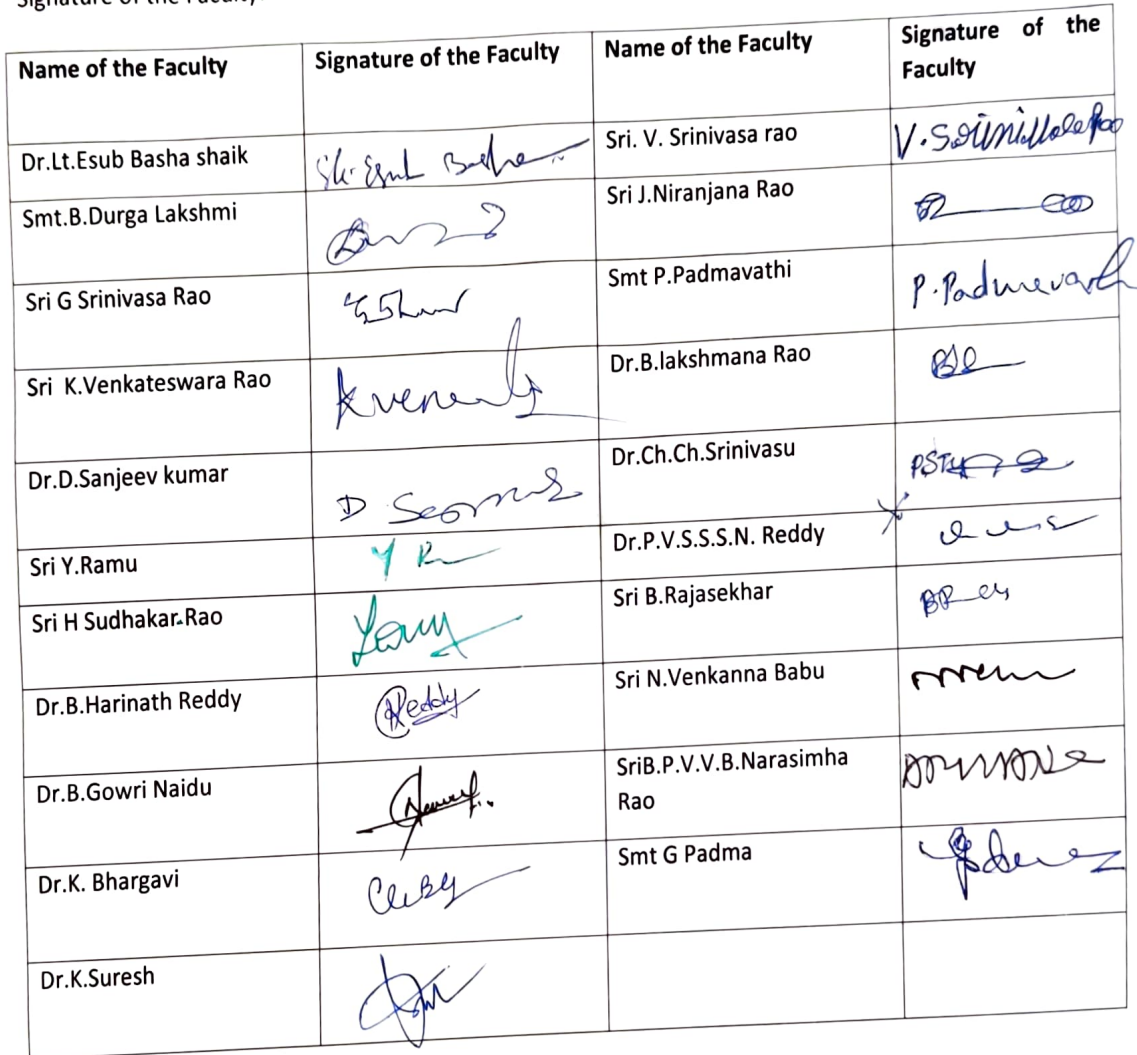 Signature of the Faculty
Name of the Faculty Signature of the Faculty Name of the Faculty Signature of the
Faculty
Dr.Lt.Esub Basha shaik Sk. Esub Basha Sri. V. Srinivasa rao V. Srinivasa Rao
Smt.B.Durga Lakshmi Sri J.Niranjana Rao
Sri G Srinivasa Rao Smt P.Padmavathi P. Padmavathi
Sri K.Venkateswara Rao Dr.B.lakshmana Rao
Dr.D.Sanjeev kumar Dr.Ch.Ch.Srinivasu
Sri Y.Ramu Dr.P.V.S.S.S.N. Reddy
Sri H Sudhakar.Rao Sri B.Rajasekhar
Dr.B.Harinath Reddy Reddy Sri N.Venkanna Babu
Dr.B.Gowri Naidu SriB.P.V.V.B.Narasimha
Rao
Dr.K. Bhargavi Smt G Padma
Dr.K.Suresh